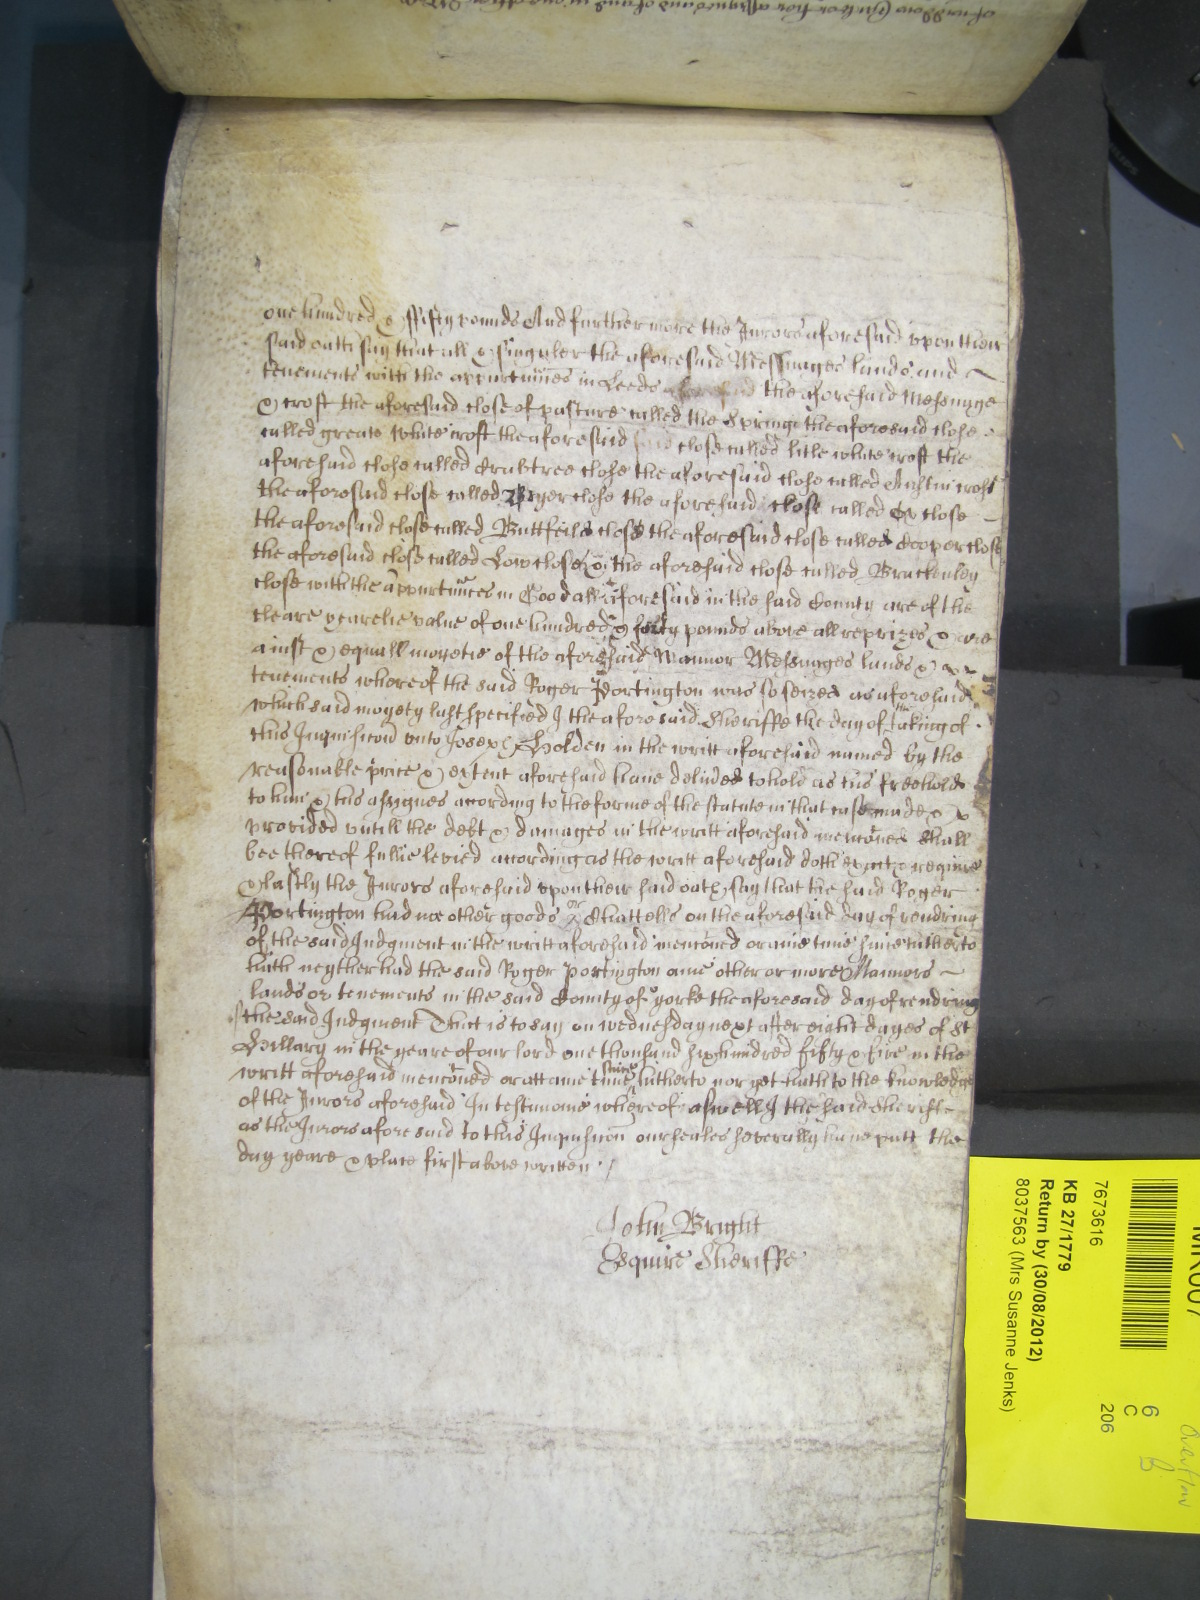 one hundred & ffifty pounds And furthermore the Jurors aforesaid vpon their
said oath say that all & singuler the aforesaid Messuages lands and
tenements with the appurtunnces in Leeds aforesaid the aforesaid Messuage
& croft the aforesaid close of pasture called the Springe the aforesaid close
called greate white croft the aforesaid close called litle white croft the
aforesaid close called Crabtree close the aforesaid close called croft
the aforesaid close called close the aforesaid close called Ox close
the aforesaid close called Buttfeild close the aforesaid close called Cooper close
the aforesaid close called Low close & the aforesaid close called Brackenley
close with the appurtunces in Goodall aforesaid in the said County are of the
cleare yearelie value of one hundred & forty pounds above all reprizes & are
a iust & equall moyetie of the aforesaid Mannor Messuages lands &
tenements whereof the said Roger Portington was so seized as aforesaid
which said moyety last specified I the aforesaid Sheriffe the day of the taking of
this Inquisicon vnto Joseph Holden in the writt aforesaid named by the
reasonable price & extent aforesaid haue deliued to hold as his freehold
to him & his assignes according to the forme of the statute in that case made &
provided vntill the debt & damages in the writt aforesaid menconed shall
bee thereof fullie levied according as the writt aforesaid doth exact & require
& lastly the Jurors aforesaid vpon their said oath say that the said Roger
Portington had noe other goods or Chattells on the aforesaid day of rendring
of the said Judgment in the writt aforesaid menconed or anie time since hitherto
hath neyther had the said Roger Portington anie other or more Mannors
lands or tenements in the said County of yorke the aforesaid day of rendring
the said Judgment That is to say on wednesday next after eight dayes of St
Hillary in the yeare of our lord one thousand six hundred fifty & five in the
writt aforesaid menconed or att anie time since hitherto nor yet hath to the knowledge
of the Jurors aforesaid In testimonie whereof aswell I the said Sheriffe
as the Jurors aforesaid to this Inquisicon our seales severally haue putt the
day yeare & place first above written
John Bright
Esquire Sheriffe
7673616
KB 27/1779
Return by (30/08/2012)
8037563 (Mrs Susanne Jenks)
6
C
206
Overflow